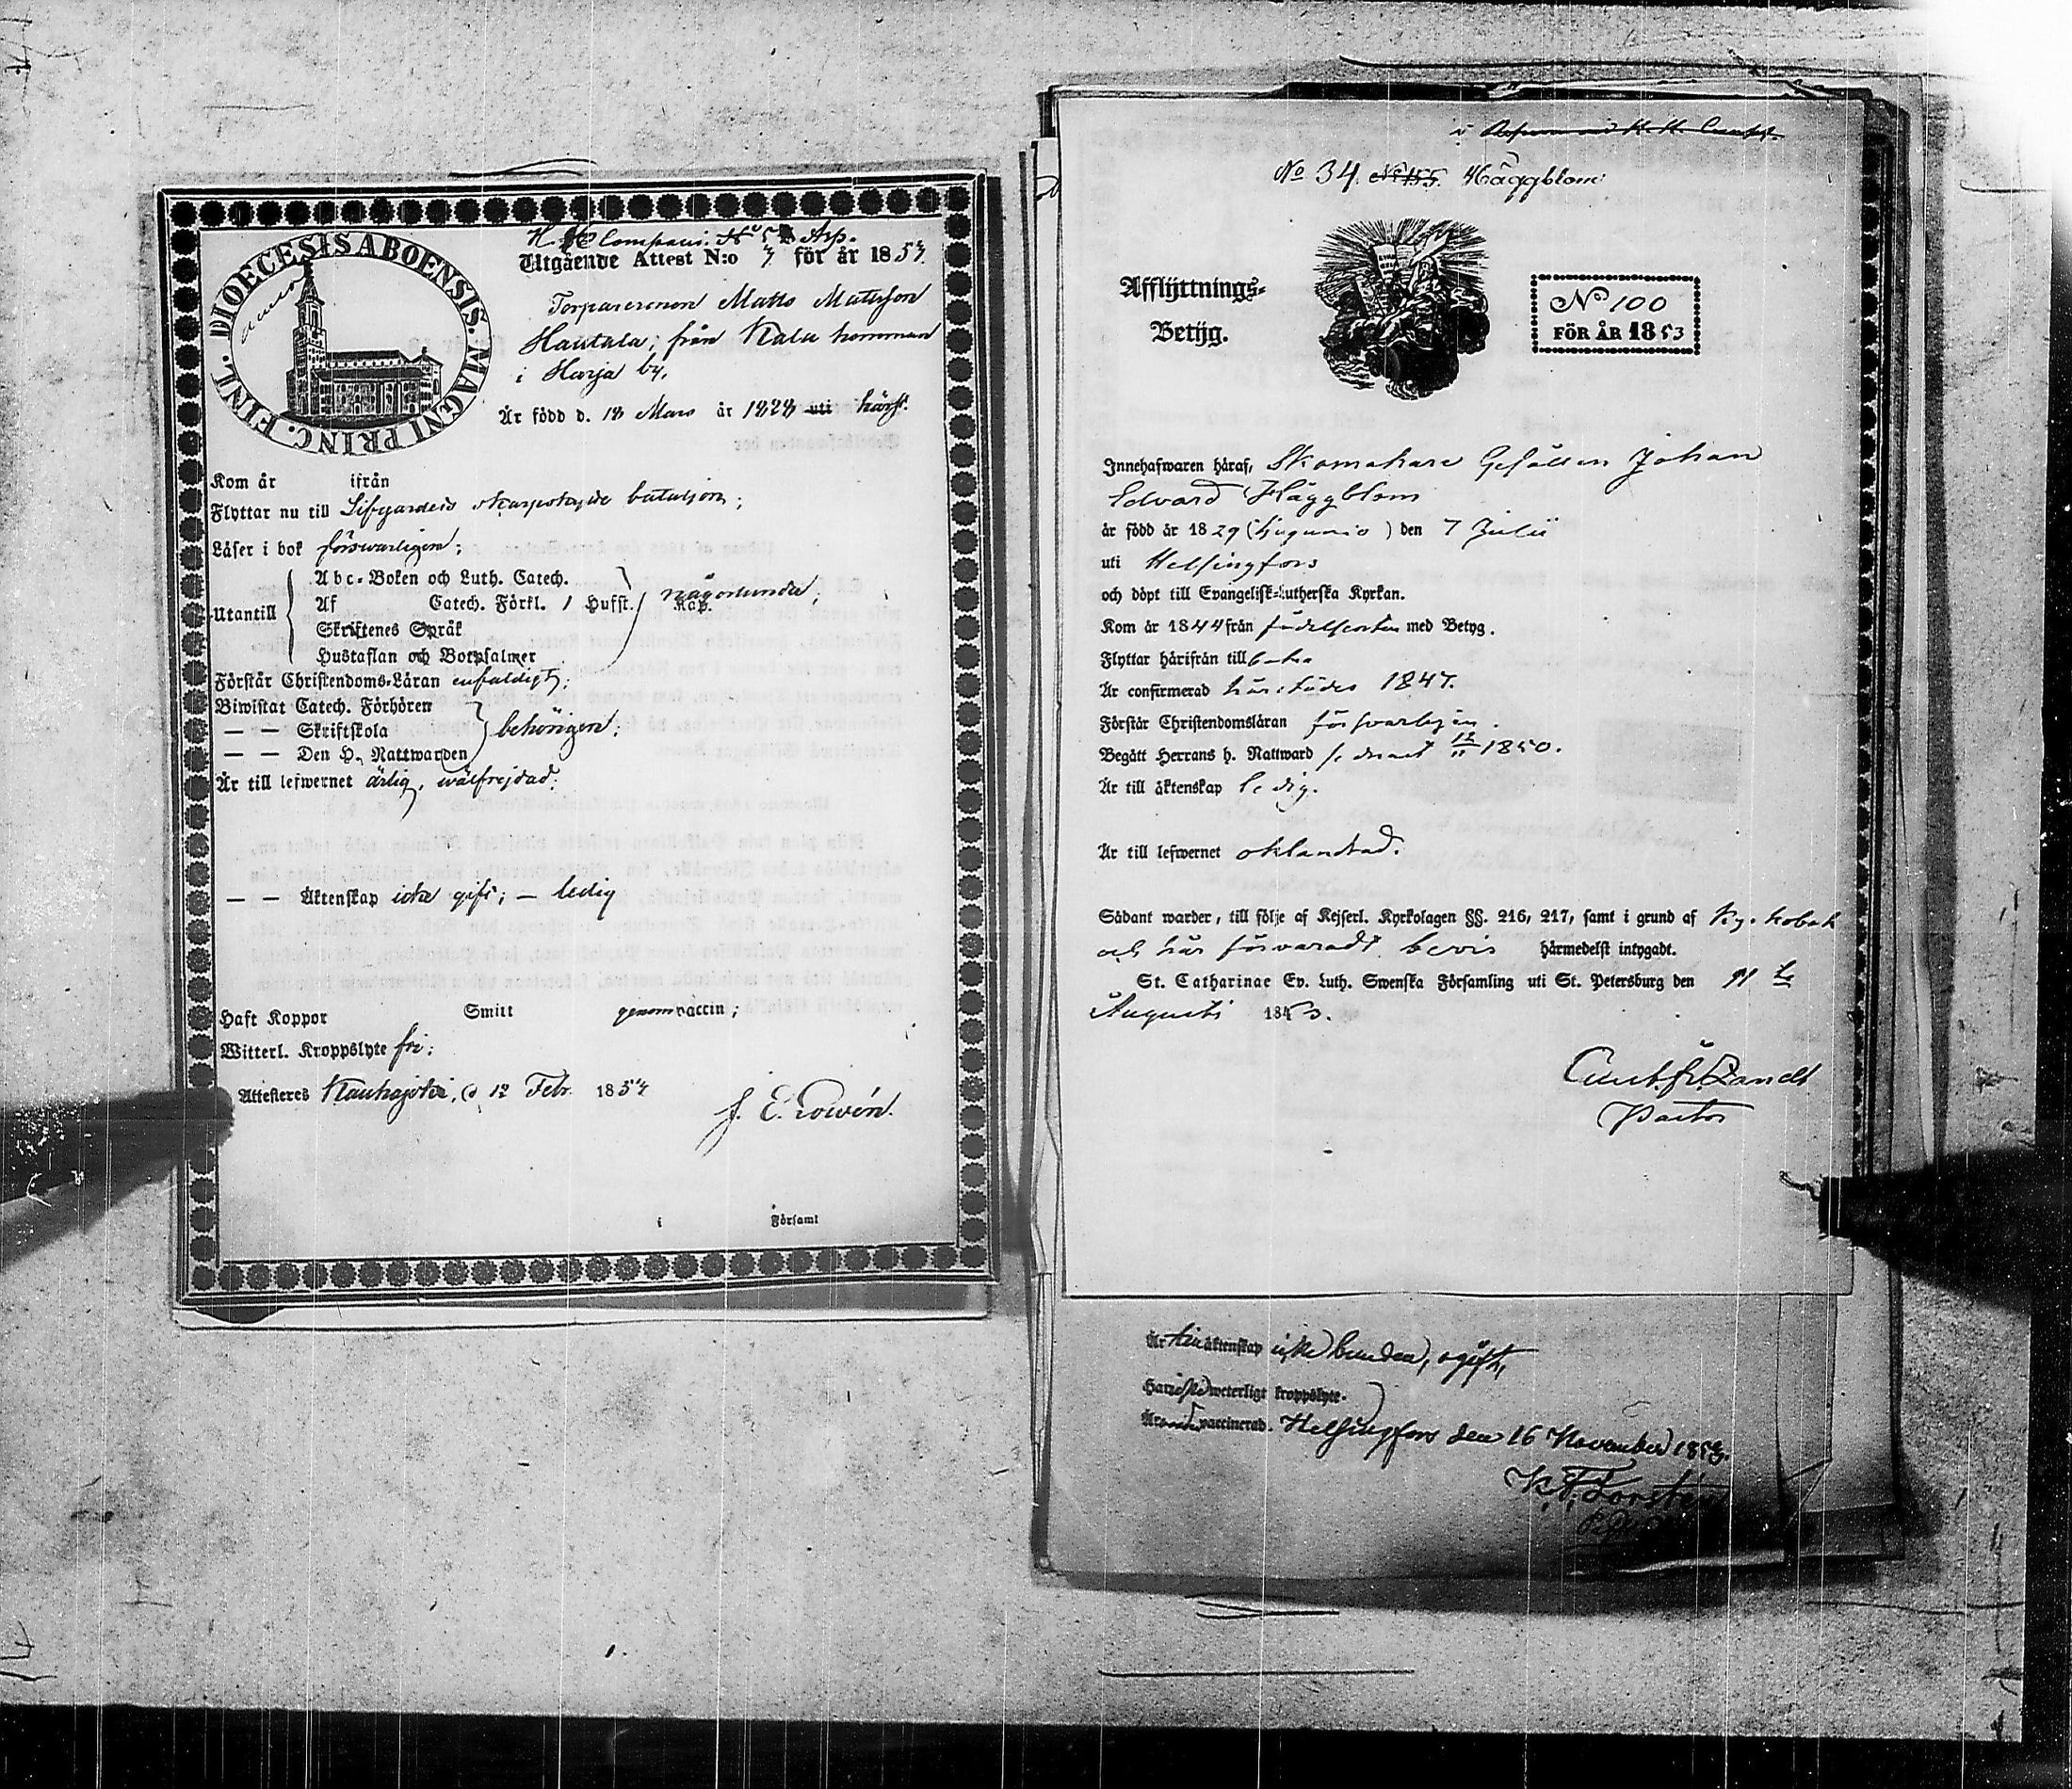 DIOECESIS ABOENSIS. MAGNI PRINC. FINL.
Utgående Attest N:o 7 för år 1854
Torparesonen Matts Mattsson
Hautala; från Kalu hemman
i Harja by,
Är född d. 18 Mars år 1828 uti härst.
Kom år ifrån
Flyttar nu till Lifgardets skarpskytte bataljon;
Läser i bok försvarligen;
Abc-Boken och Luth. Catech.
Utantill Af Catech. Förkl. 1 Hufst. Kap. någorlunda;
Skriftenes Språk
Hustaflan och Botpsalmer
Förstår Christendoms-Läran enfaldigt;
Biwistat Catech. Förhören
— — Skriftskola behörigen;
— — Den H. Nattwarden
Är till lefwernet ärlig, wälfrejdad;
— — Äktenskap icke gift; — ledig
Haft Koppor Smitt genom vaccin;
Witterl. Kroppslyte fri;
Attesteras Kauhajoki, d 12 Febr. 1854
i Församl
No 34. Häggblom
Afflyttnings-
Betyg.
No 100
FÖR ÅR 1853
Innehafwaren häraf, Skomakare Gesällen Johan
Edvard Häggblom
är född år 1829 (tjugunio) den 7 Julii
uti Helsingfors
och döpt till Evangelisk-Lutherska Kyrkan.
Kom år 1844 från födelseorten med Betyg.
Flyttar härifrån till
Är confirmerad härstädes 1847.
Förstår Christendomsläran försvarligen.
Begått Herrans h. Nattward senast 12/11 1850.
Är till äktenskap ledig.
Är till lefwernet oklandrad.
Sådant warder, till följe af Kejserl. Kyrkolagen §§. 216, 217, samt i grund af Kyrkobok
och här förvaradt bevis härmedelst intygadt.
St. Catharinae Ev. Luth. Swenska Församling uti St. Petersburg den 11 te
Augusti 1853.
Pastor
Är till äktenskap icke bunden, ogift,
Har icke weterligt kroppslyte.
Är vaccinerad. Helsingfors den 16 November 1853.